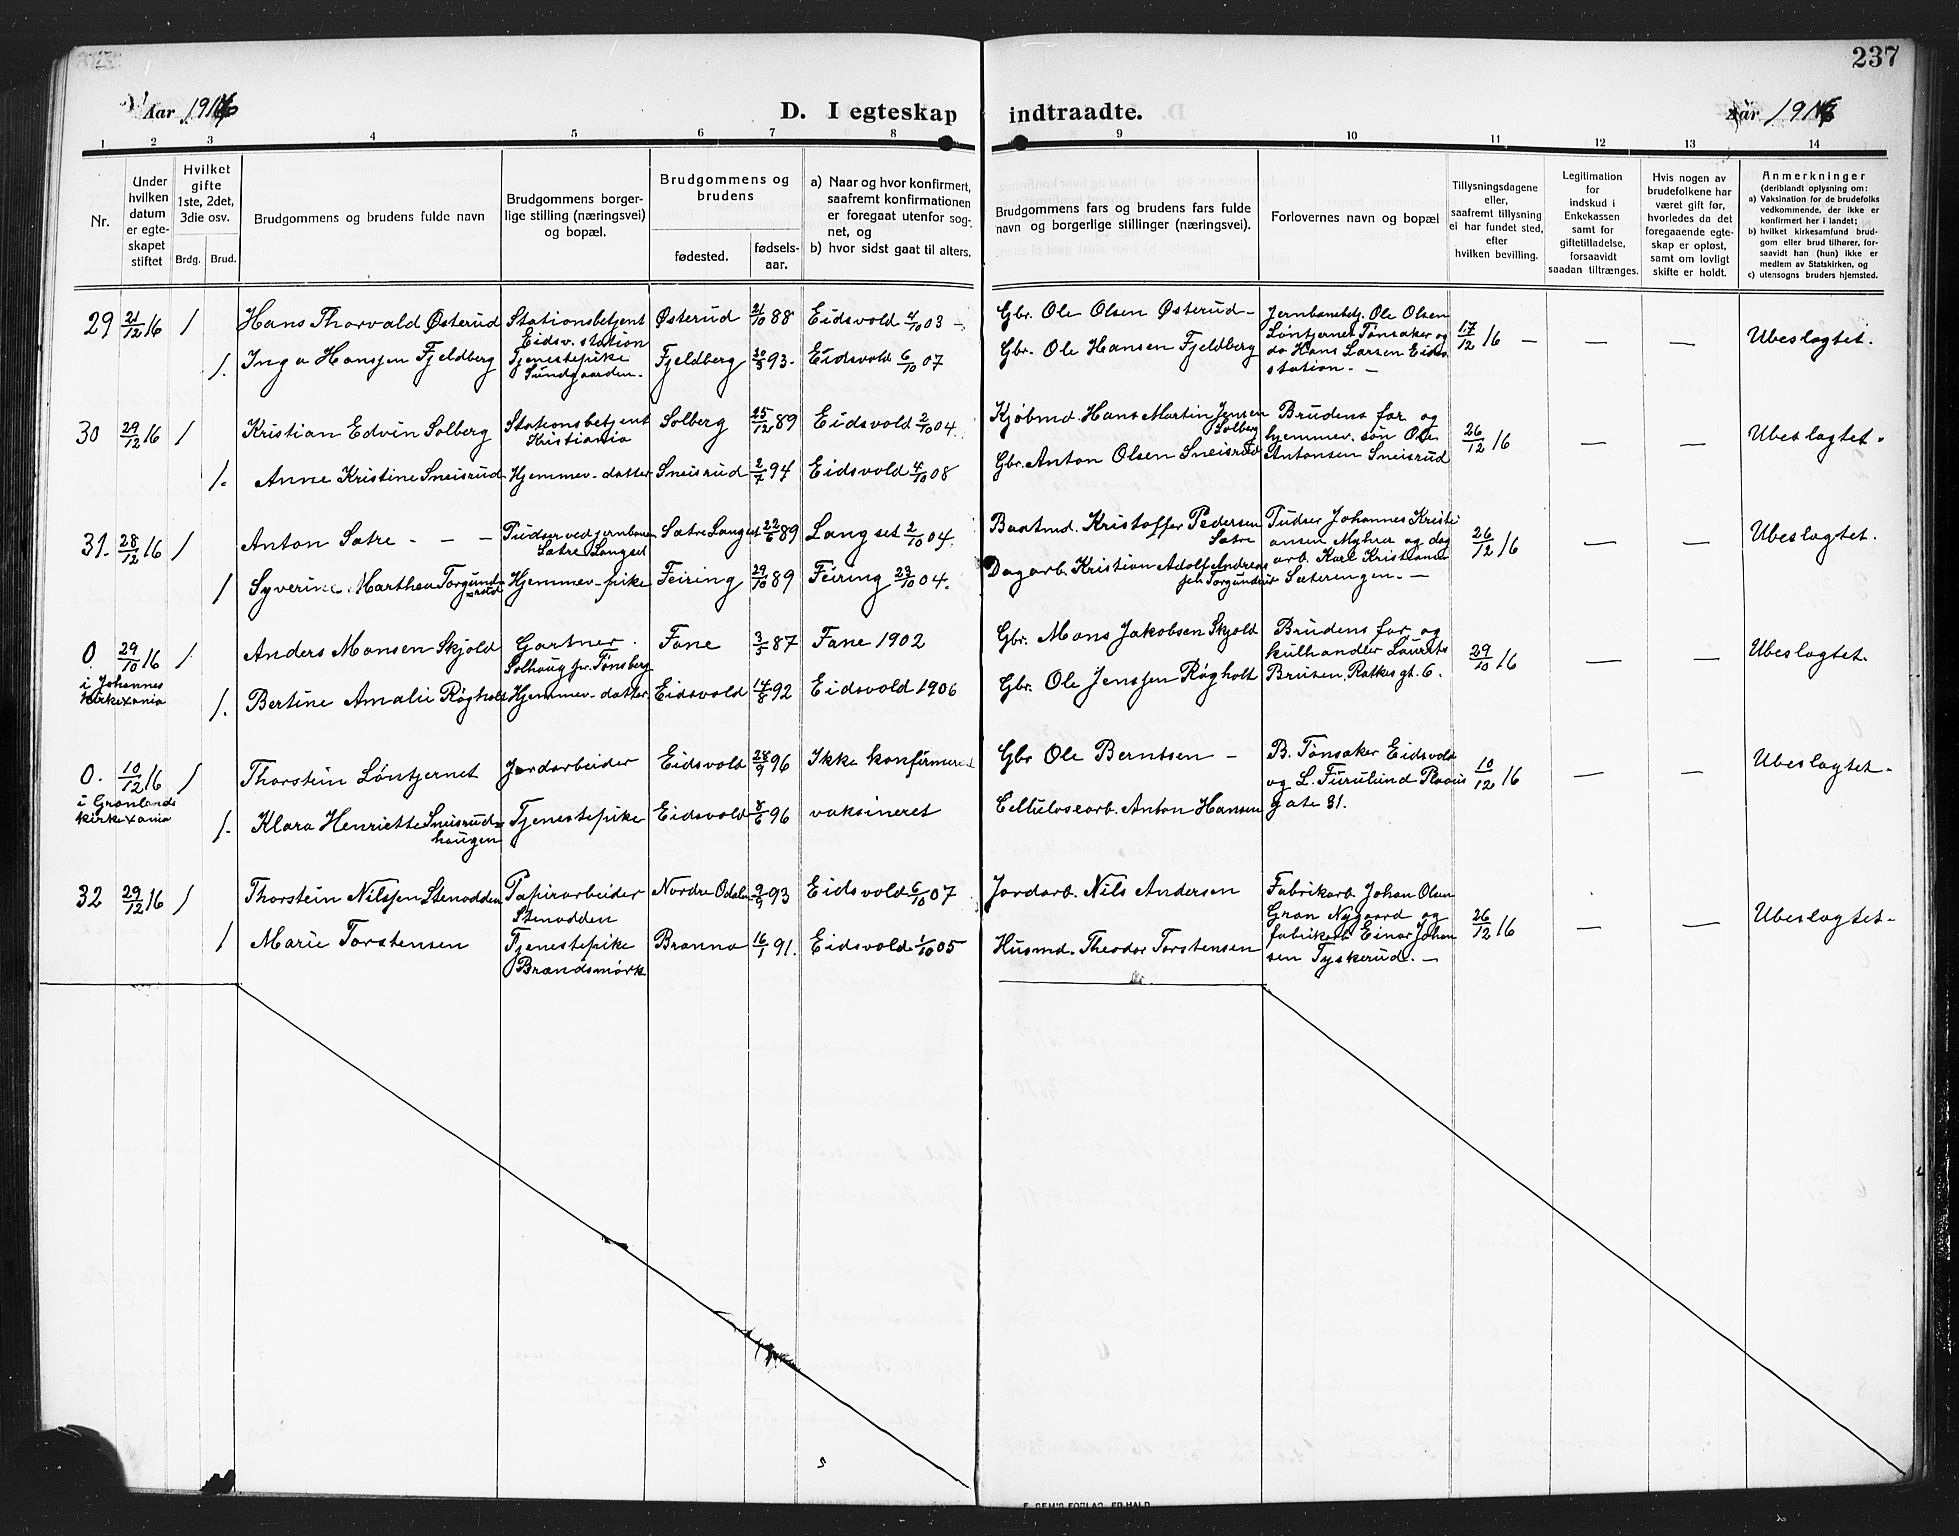 237
Aar 1916
D. I egteskap indtraadte.
Aar 1916
1 2 3 4 5 6 7 8 9 10 11 12 13 14
Nr.
Under hvilken datum er egteskapet stiftet
Hvilket gifte 1ste, 2det, 3die osv.
Brdg. Brud.
Brudgommens og brudens fulde navn
Brudgommens borgerlige stilling (næringsvei) og bopæl.
Brudgommens og brudens
fødested. fødselsaar.
a) Naar og hvor konfirmert, saafremt konfirmationen er foregaat utenfor sognet, og
b) hvor sidst gaat til alters.
Brudgommens fars og brudens fars fulde navn og borgerlige stillinger (næringsvei).
Forlovernes navn og bopæl
Tillysningsdagene eller, saafremt tillysning ei har fundet sted, efter hvilken bevilling.
Legitimation for indskud i Enkekassen samt for giftetilladelse, forsaavidt saadan tiltrænges.
Hvis nogen av brudefolkene har været gift før, hvorledes da det foregaaende egteskap er opløst, samt om lovligt skifte er holdt.
Anmerkninger
(deriblandt oplysning om:
a) Vaksination for de brudefolks vedkommende, der ikke er konfirmert her i landet;
b) hvilket kirkesamfund brudgom eller brud tilhører, forsaavidt han (hun) ikke er medlem av Statskirken, og
c) utensogns bruders hjemsted.
29 21/12 16 1 Hans Thorvald Østerud Stationsbetjent Eidsv. station Østerud 21/10 88 Eidsvold 4/10 03 - Gbr. Ole Olsen Østerud - Jernbanebetj. Ole Olsen Løntjernet Tønsaker og do Hans Larsen Eidsv. station. - 17/12 16 - - - Ubeslogtet.
1. Inga Hansjen Fjeldberg Tjenestepike Sundgaarden. Fjeldberg 93. Eidsvold 6/10 07 Gbr. Ole Hansen Fjeldberg
30 29/12 16 1 Kristian Edvin Solberg Stationsbetjent Kristiania Solberg 25/12 89 Eidsvold 2/10 04. Kjøbmd. Hans Martin Jensen Solberg Brudens far og hjemmev. søn Ole Antonsen Sneisrud 26/12 16 - - Ubeslogtet.
1. Anne Kristine Sneisrud Hjemmev. datter Sneisrud 2/7 94 Eidsvold 4/10 08 Gbr. Anton Olsen Sneisrud
31. 28/12 16 1 Anton Sætre - - - Pudser ved jernbanen Sætre Langset Sætre Langset 22/6 89 Langset 2/10 04. Baatmd. Kristoffer Pedersen Sætre Pudser Johannes Kristiansen Myhrer og dagarb. Karl Kristiansen Sæterengen. - 26/12 16 - - Ubeslogtet.
1 Syverine Marthea Torgundrud Hjemmev. pike Feiring 29/10 89 Feiring 23/10 04. Dagarb. Kristian Adolf Andreassen Torgundrud
0. 29/10 16 1 Anders Monsen Skjold Gartner. Solhaug pr. Tønsberg Fane 3/5 87 Fane 1902 Gbr. Mons Jakobsen Skjold Brudens far og kulhandler Laurits Brusen, Ratkes gt. 6. 29/10 16 - - Ubeslogtet.
i Johannes kirke Xania 1. Bertine Amalie Røgholt Hjemmev. datter Eidsvold 14/8 92 Eidsvold 1906 Gbr. Ole Jensjen Røgholt
0. 10/12 16 1 Thorstein Løntjernet Jordarbeider Eidsvold 28/9 96 Ikke konfirmeret Gbr Ole Berntsen - B. Tønsaker Eidsvold og L. Furulund Plaaus gate 31. 10/12 16 - - Ubeslogtet -
i Grønlands kirke Xania 1. Klara Henriette Sneisrudhaugen Tjenestepike Eidsvold 8/6 96 vaksineret Cellulosearb. Anton Hansen
32 29/12 16 1 Thorstein Nilsjen Stenodden Papirarbeider Stenodden Nordre Odalen 93 Eidsvold 6/10 07 Jordarb. Nils Andersen Fabrikarb. Johan Olsen Gran Nygaard og fabrikarb. Einar Johansen Tyskerud. - 26/12 16 - - Ubeslogtet -
1 Marie Torstensen Tjenestepike Brandsmørk 91. Eidsvold 1/10 05 Husmd. Theodor Torstensen